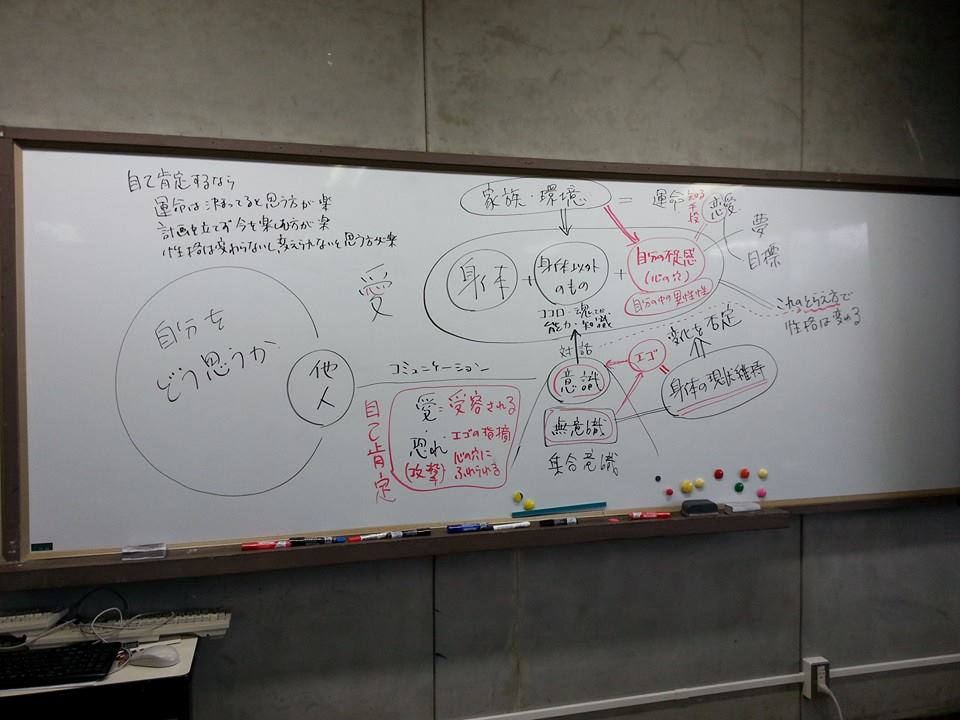 自己肯定するなら
運命は決まってると思う方が楽
計画を立てず今を楽しむ方が楽
性格は変わらないし変えられないと思う方が楽
自分を
どう思うか
他人
愛
コミュニケーション
自己肯定
愛=受容される
恐れ
(攻撃)
エゴの指摘
心の穴に
ふれられる
家族・環境
= 運命
知る
手段
恋愛
夢
目標
身体
+
身体以外
のもの
+
自分の
(心の穴)
自分の中の異性性
ココロ・魂
能力・知識
これのとらえ方で
性格は変わる
対話
意識
エゴ
変化を否定
身体の現状維持
無意識
集合意識